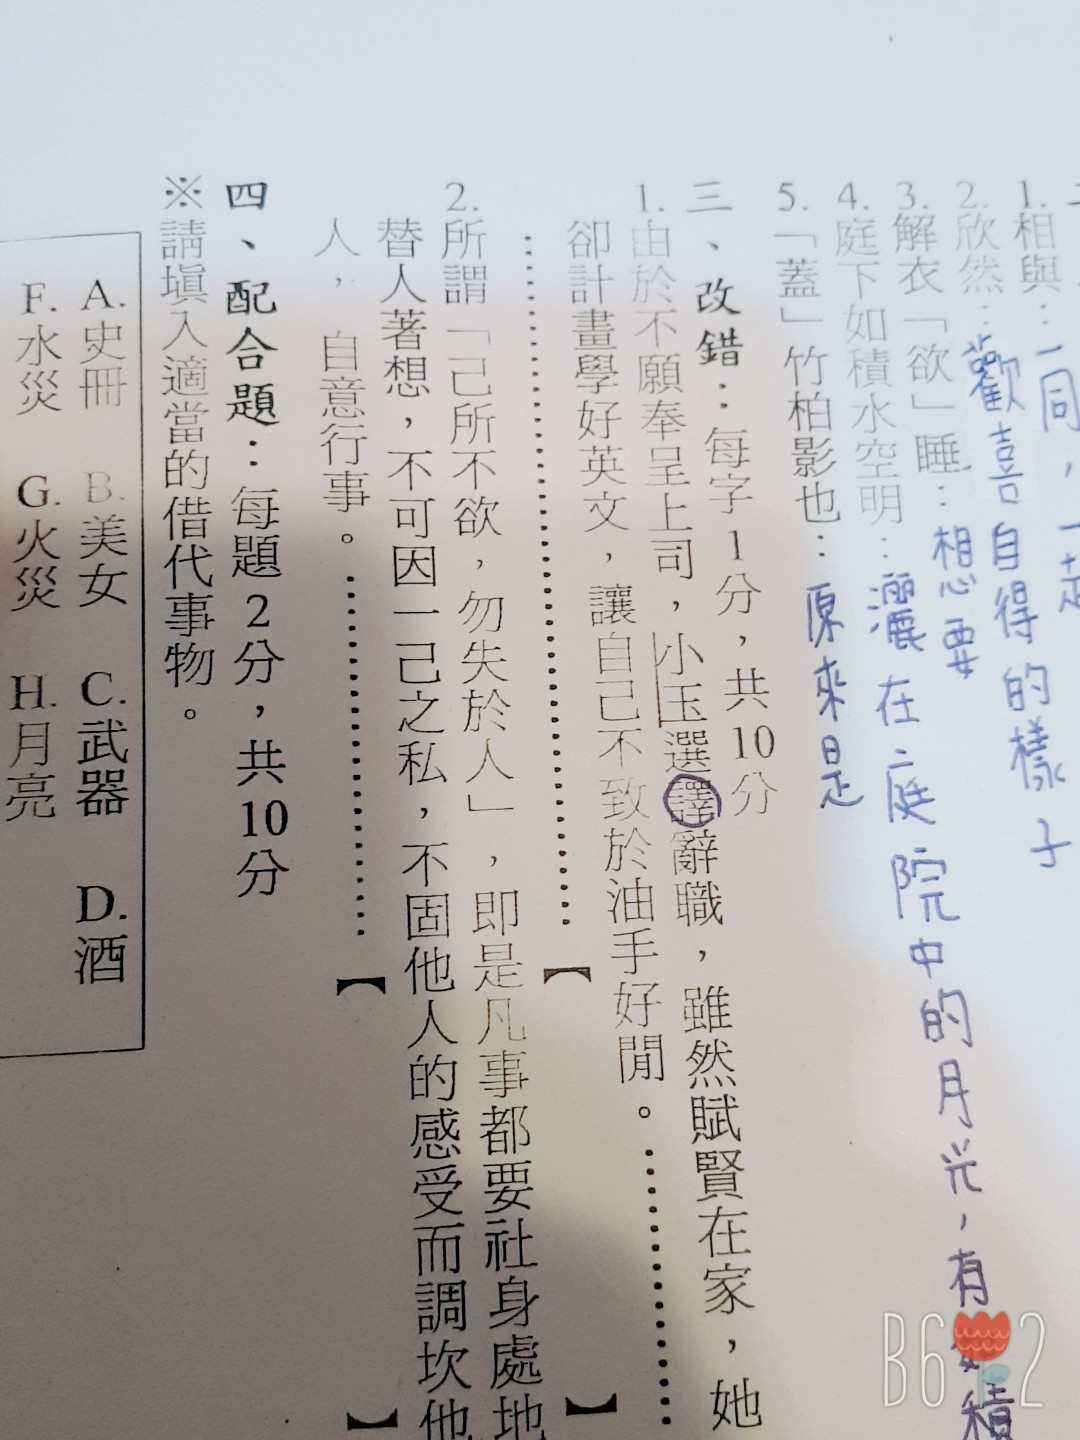 1. 相與：一同，一起
2. 欣然：歡喜自得的樣子
3. 解衣「欲」睡：想要
4. 庭下如積水空明：灑在庭院中的月光，有如積
5. 「蓋」竹柏影也：原來是
三、改錯：每字1分，共10分
1. 由於不願奉呈上司，小玉選譯辭職，雖然賦賢在家，她
卻計畫學好英文，讓自己不致於油手好閒。…………
…………………………【 】
2. 所謂「己所不欲，勿失於人」，即是凡事都要社身處地
替人著想，不可因一己之私，不固他人的感受而調坎他
人，自意行事。…………………【 】
四、配合題：每題2分，共10分
※請填入適當的借代事物。
A.史冊 B.美女 C.武器 D.酒
F.水災 G.火災 H.月亮
B612